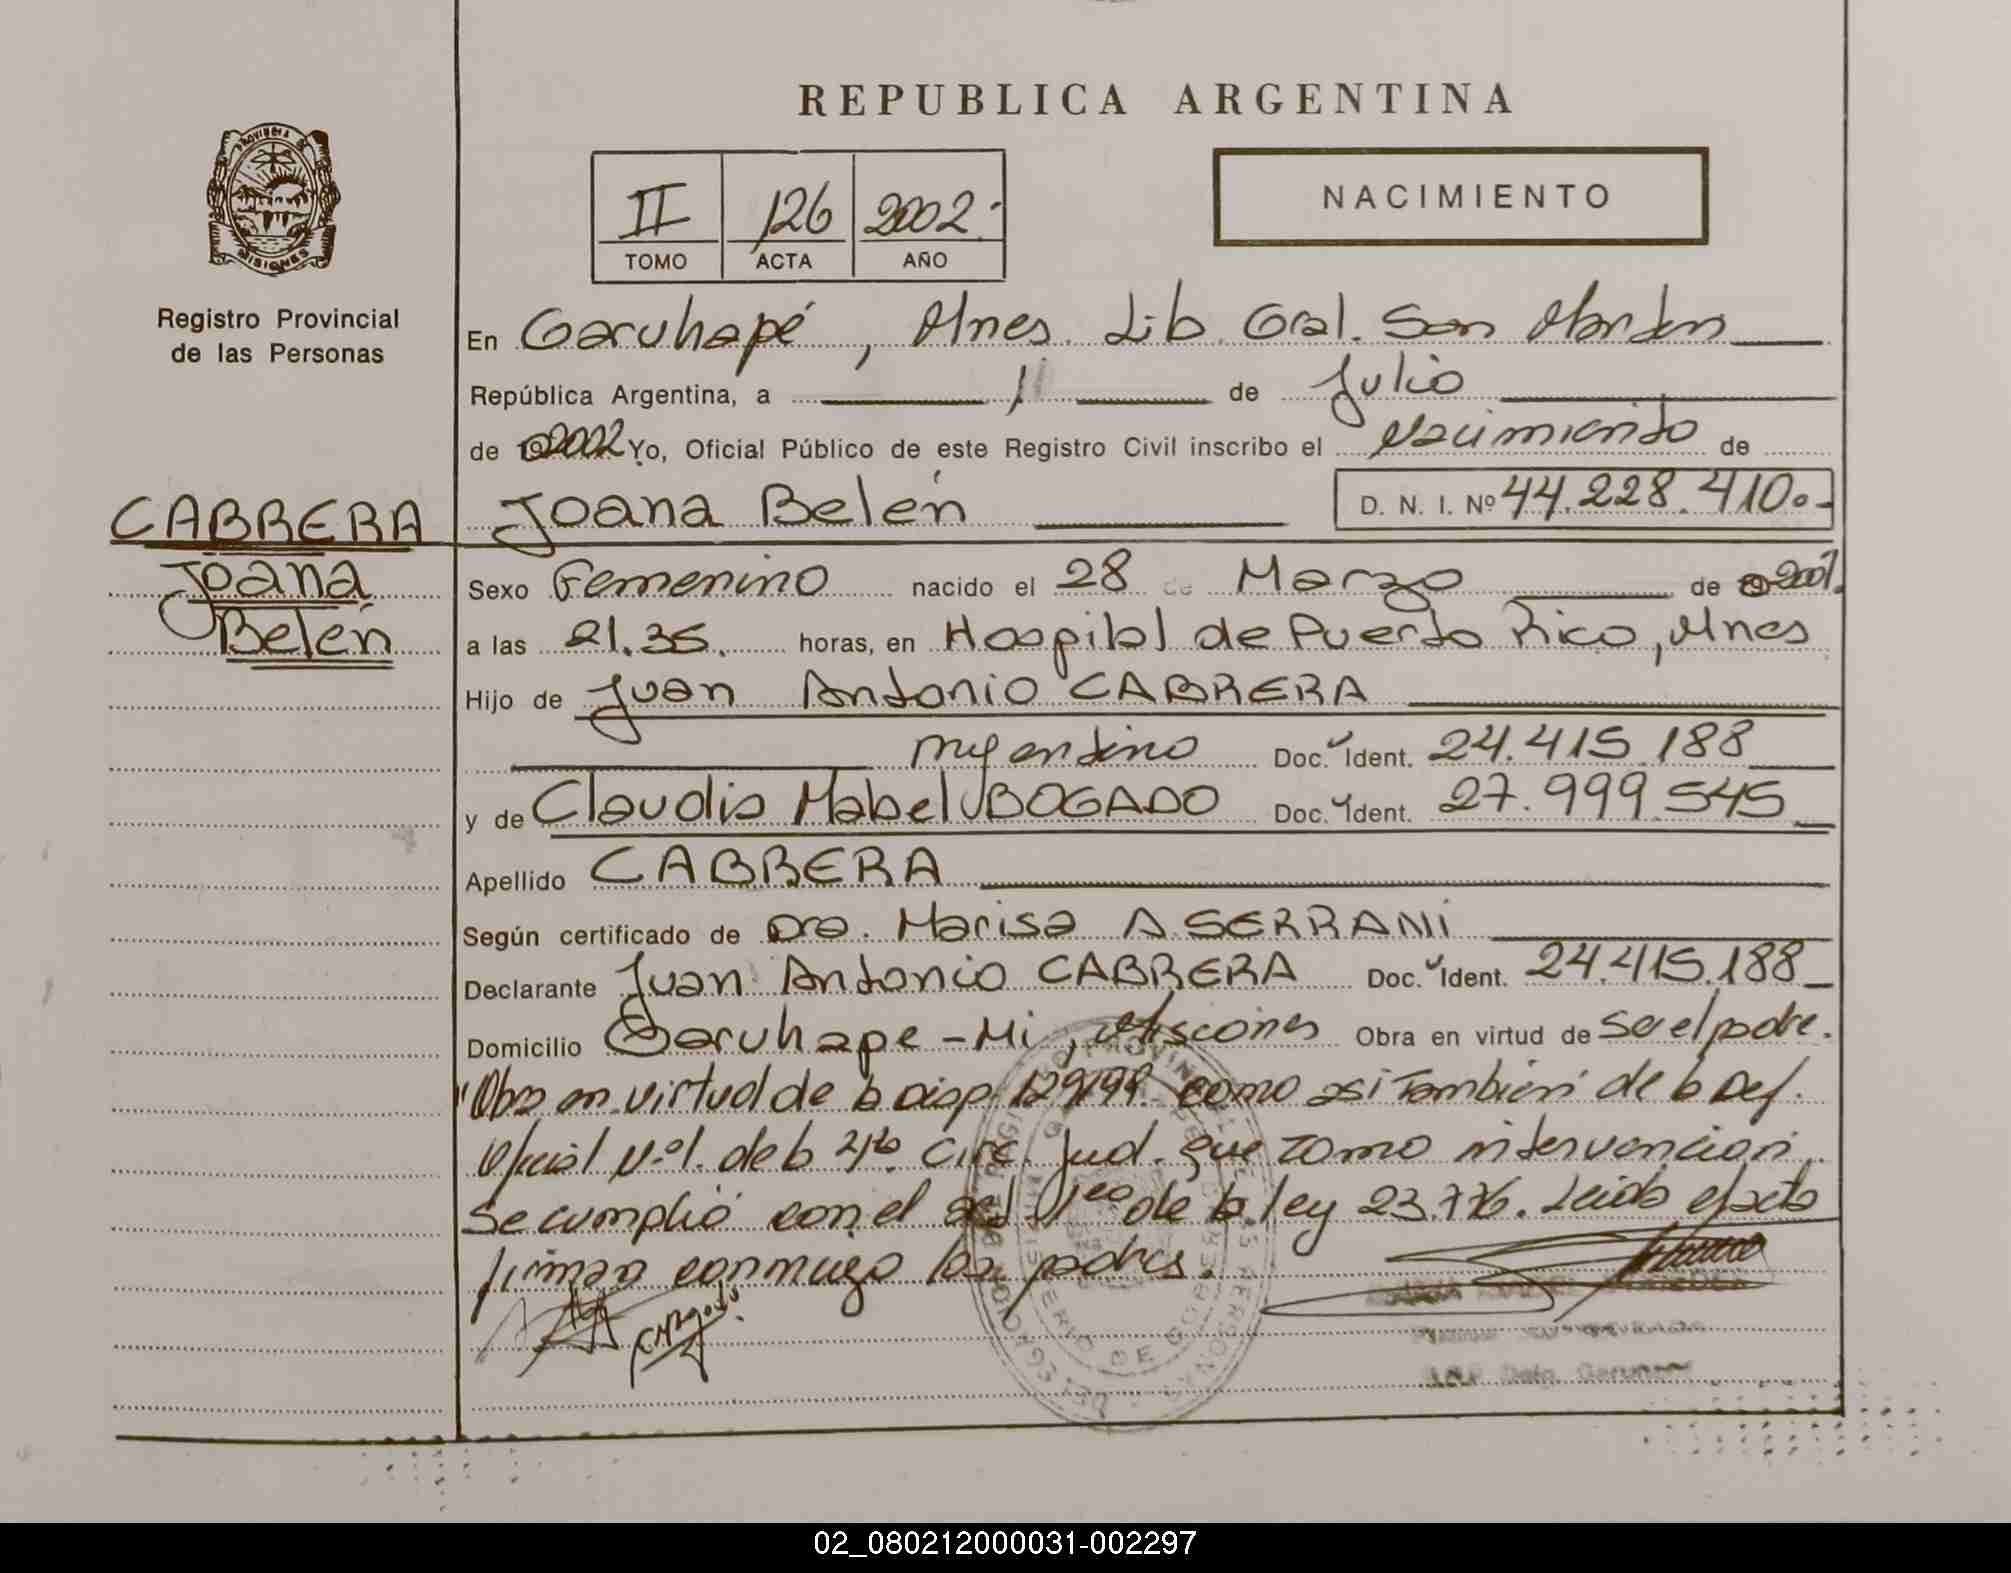 REPUBLICA ARGENTINA
PROVINCIA DE
MISIONES
Registro Provincial
de las Personas
II 126 2002.
TOMO ACTA AÑO
NACIMIENTO
En Garuhapé, Mnes. Lib. Gral. San Martin
República Argentina, a 11 de Julio
de 2002 Yo, Oficial Público de este Registro Civil inscribo el Nacimiento de
CABRERA Joana Belén D. N. I. Nº 44.228.410.-
Joana Sexo Femenino nacido el 28 de Marzo de
Belén a las 21.35. horas, en Hospital de Puerto Rico, Mnes
Hijo de Juan Antonio CABRERA
Argentino Doc. Ident. 24.415.188
y de Claudia Mabel BOGADO Doc. Ident. 27.999.545
Apellido CABRERA
Según certificado de Dra. Marisa A. SERRANI
Declarante Juan Antonio CABRERA Doc. Ident. 24.415.188
Domicilio Garuhape-Mi, Misiones Obra en virtud de Ser el padre.
Obra en virtud de la Disp. como asi también de la Def.
Oficial Nº1. de la Circ. Jud. que tomo intervención
se cumplió con el art de la ley 23.776. Leida el acta
firman conmigo los padres.
02_080212000031-002297